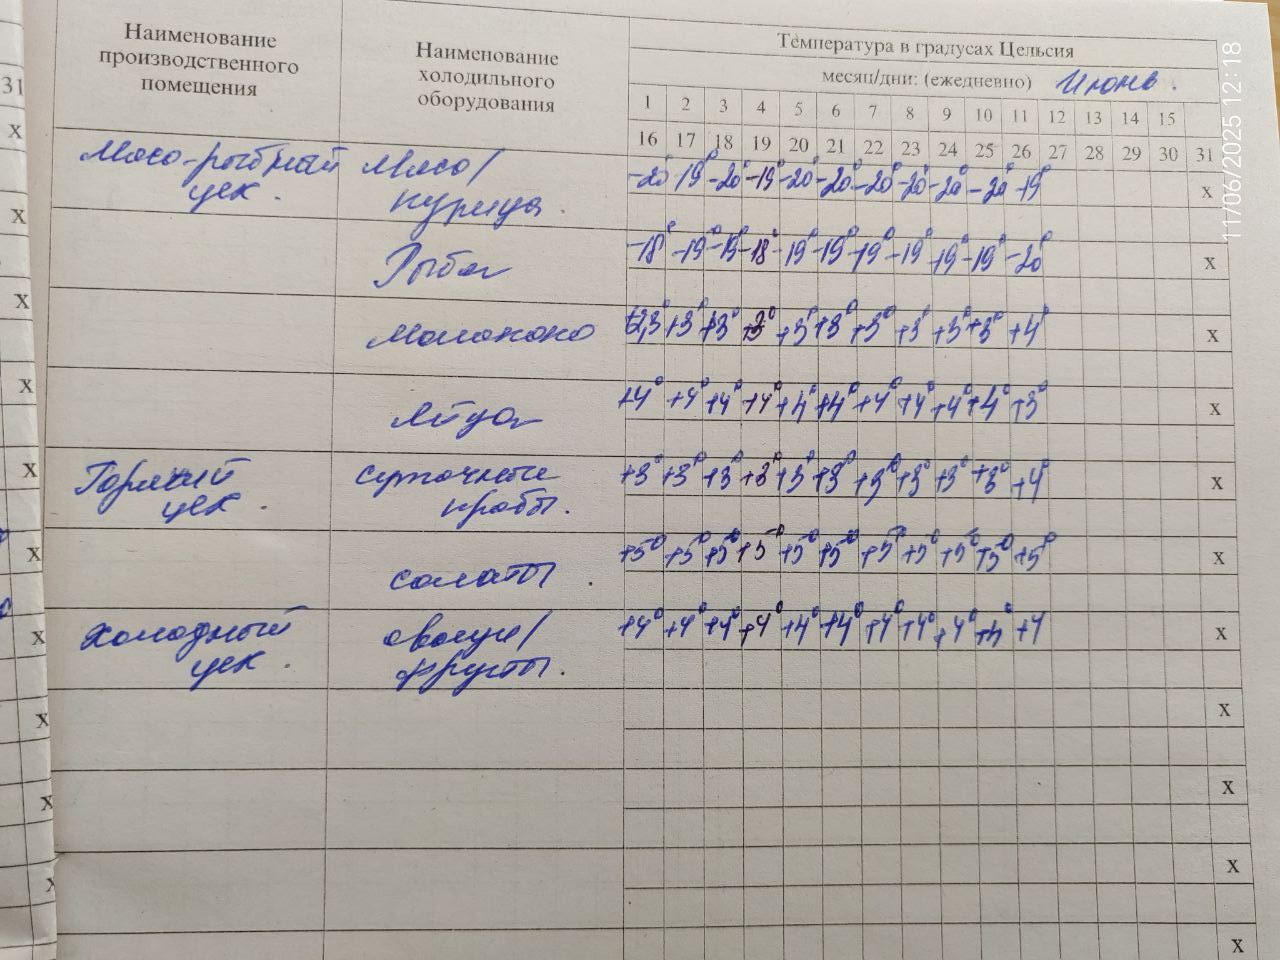 Наименование
производственного
помещения
Наименование
холодильного
оборудования
Температура в градусах Цельсия
месяц/дни: (ежедневно) Июнь.
31 1 2 3 4 5 6 7 8 9 10 11 12 13 14 15
16 17 18 19 20 21 22 23 24 25 26 27 28 29 30 31
х Мясо-рыбный цех. Мясо/курица -20° -19° -20° -19° -20° -20° -20° -20° -20° -20° -19° х
х Рыба -18° -19° -19° -18° -19° -19° -19° -19° -19° -19° -20° х
х Молоконо +3° +3° +3° +3° +3° +3° +3° +3° +3° +4° х
х Яйца +4° +4° +4° +4° +4° +4° +4° +4° +4° +4° +3° х
х Горячий цех. суточные пробы. +3° +3° +3° +3° +3° +3° +3° +3° +3° +3° +4° х
х салаты. +5° +5° +5° +5° +5° +5° +5° +5° +5° +5° +5° х
х Холодный цех. овощи/фрукты. +4° +4° +4° +4° +4° +4° +4° +4° +4° +4° +4 х
х х
х х
х х
х
11/06/2025 12:18